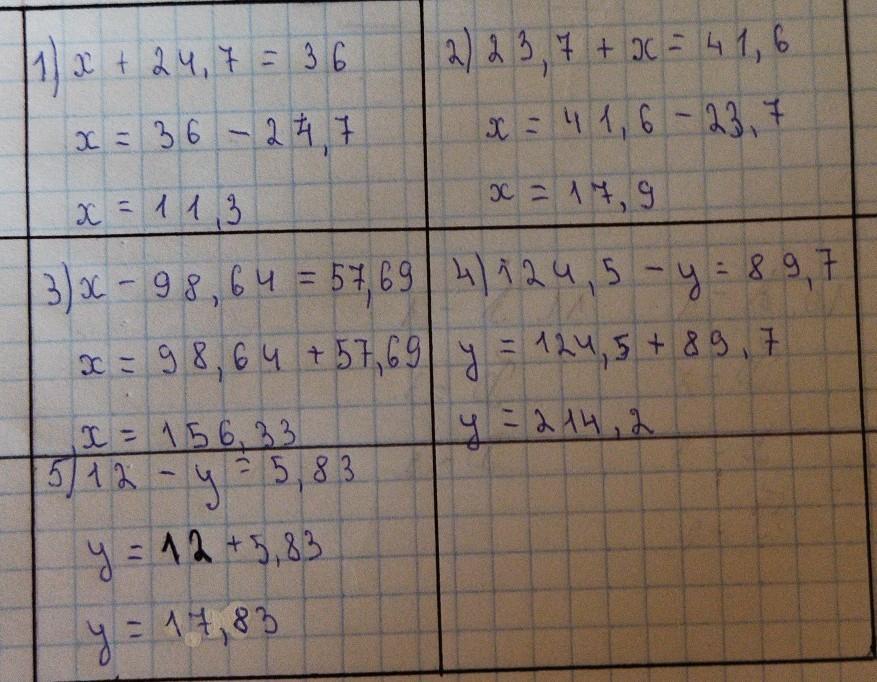 1) x + 24,7 = 36
x = 36 - 24,7
x = 11,3
2) 23,7 + x = 41,6
x = 41,6 - 23,7
x = 17,9
3) x - 98,64 = 57,69
x = 98,64 + 57,69
x = 156,33
4) 124,5 - y = 89,7
y = 124,5 + 89,7
y = 214,2
5) 12 - y = 5,83
y = 12 + 5,83
y = 17,83